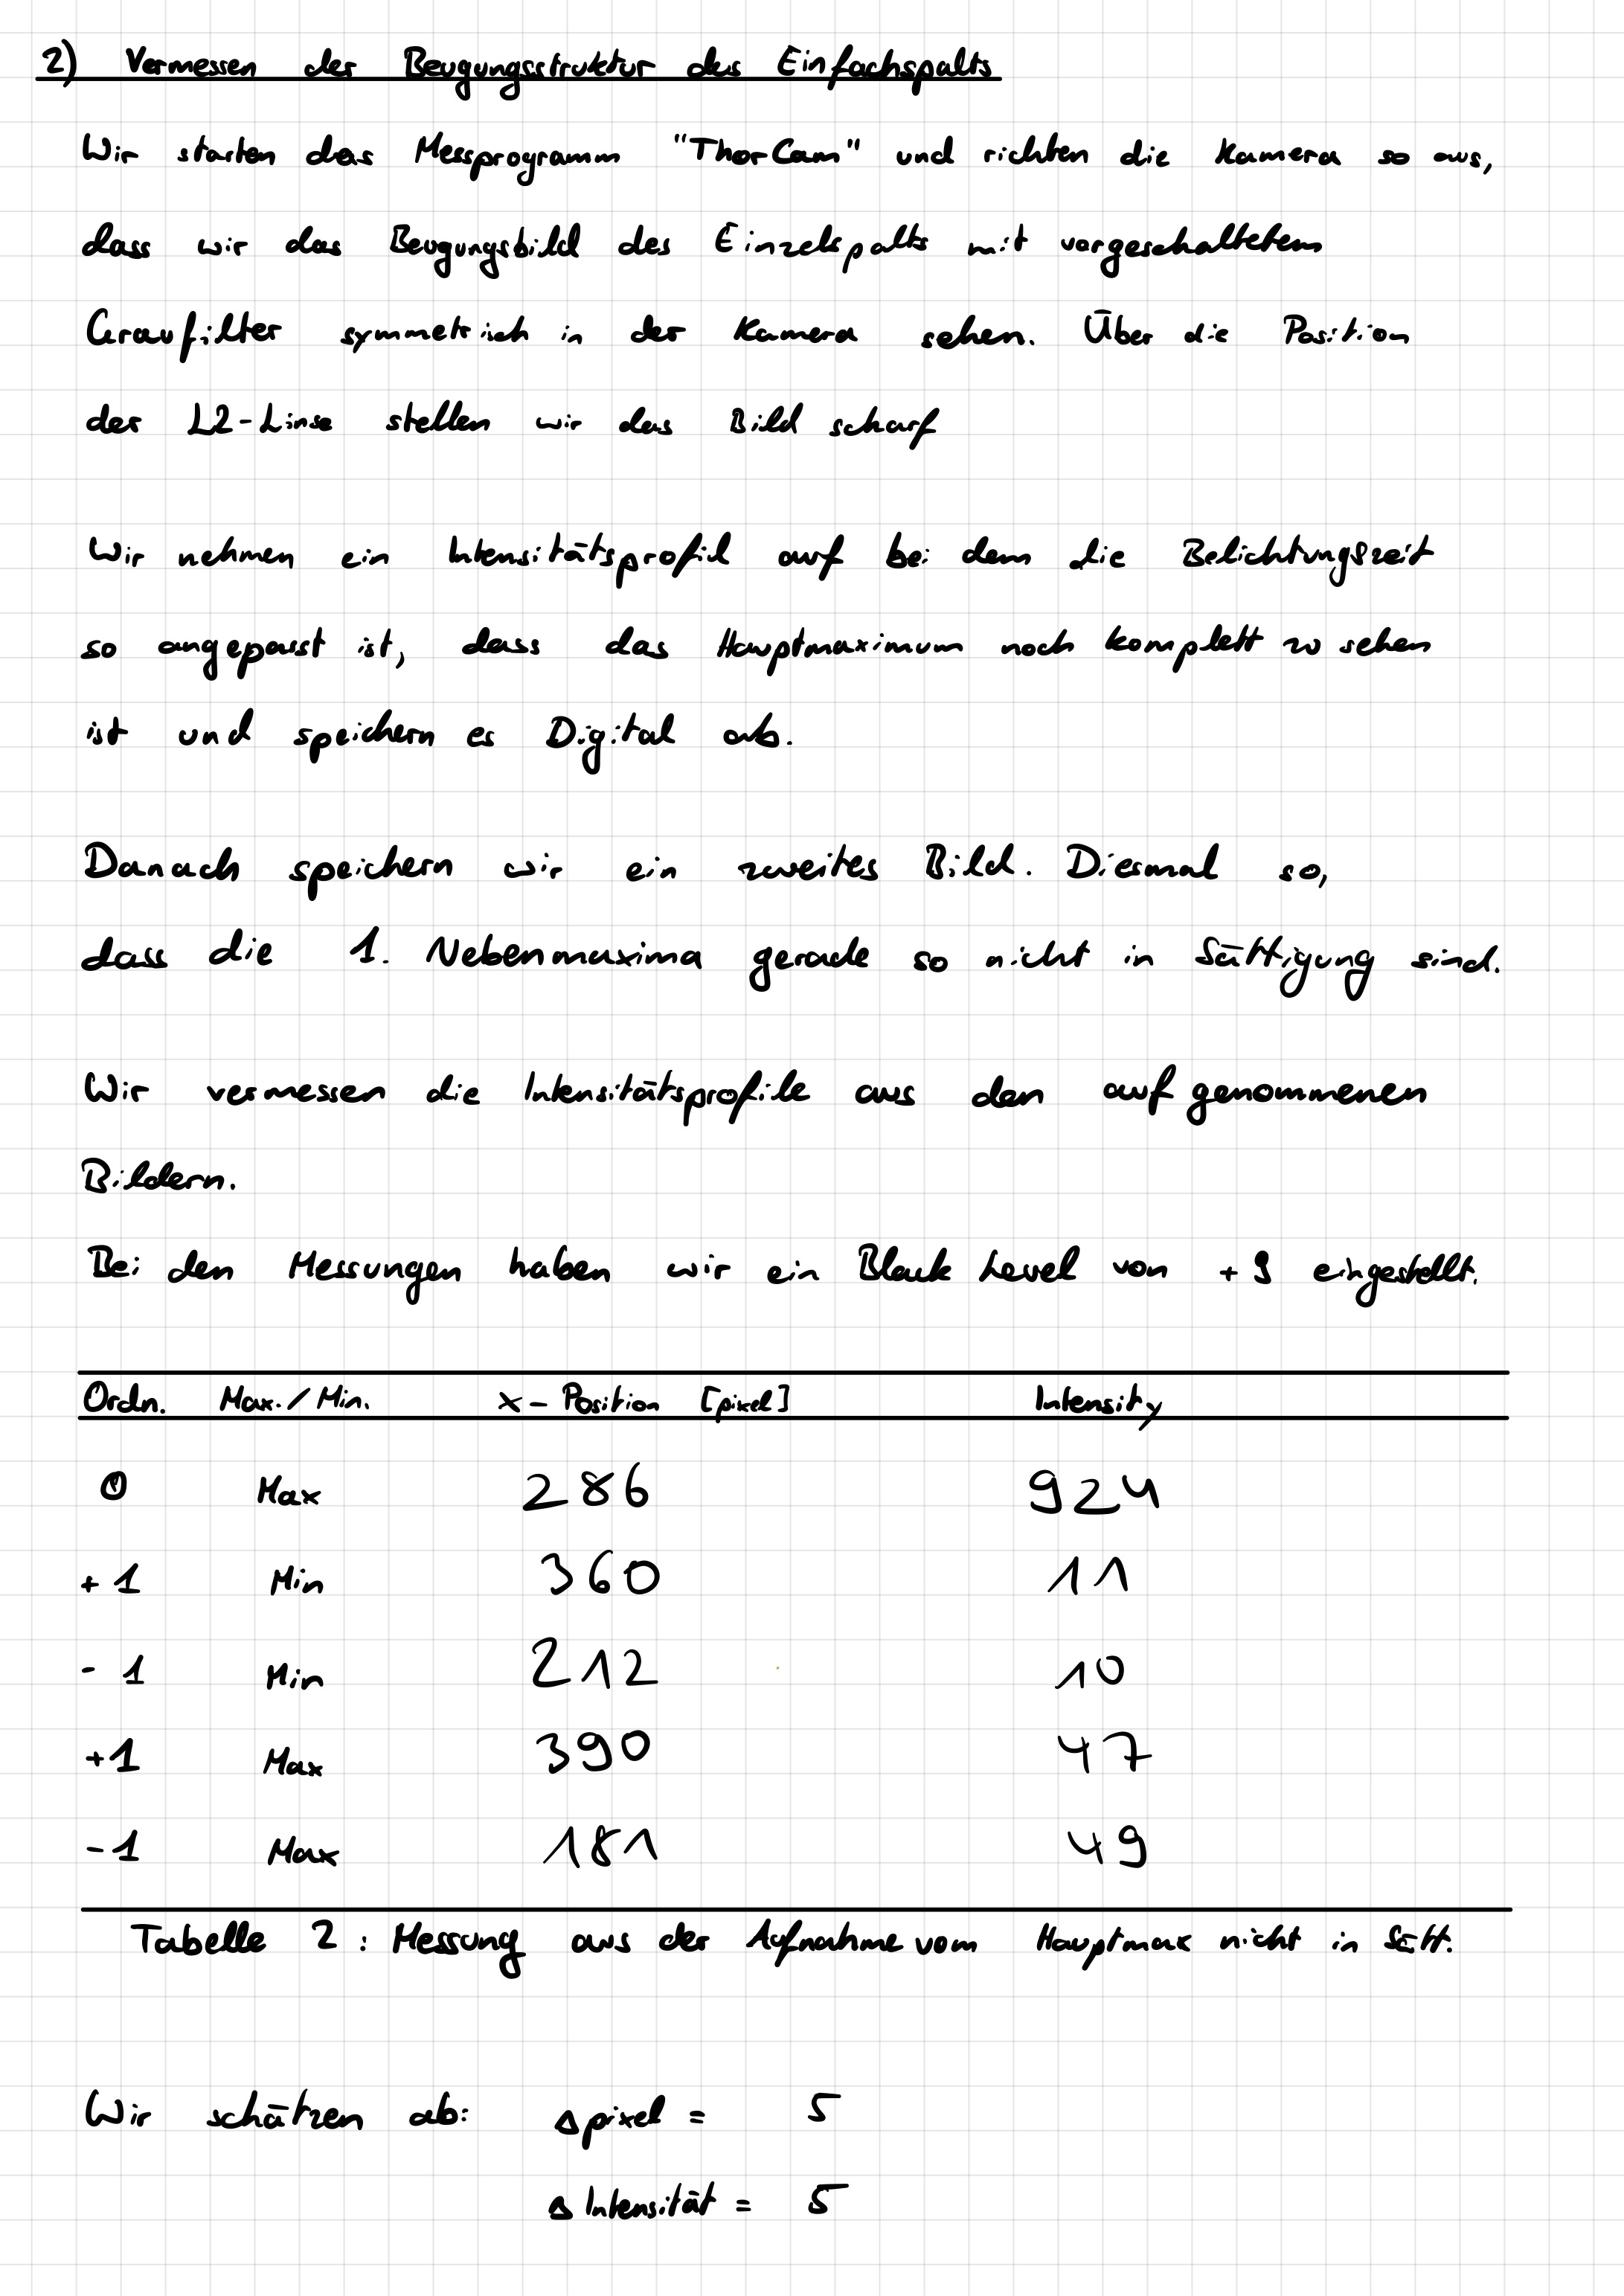 2) Vermessen der Beugungsstruktur des Einfachspalts
Wir starten das Messprogramm "ThorCam" und richten die Kamera so aus,
dass wir das Beugungsbild des Einzelspalts mit vorgeschaltetem
Graufilter symmetrisch in der Kamera sehen. Über die Position
der L2-Linse stellen wir das Bild scharf
Wir nehmen ein Intensitätsprofil auf bei dem die Belichtungszeit
so angepasst ist, dass das Hauptmaximum noch komplett zu sehen
ist und speichern es Digital ab.
Danach speichern wir ein zweites Bild. Diesmal so,
dass die 1. Nebenmaxima gerade so nicht in Sättigung sind.
Wir vermessen die Intensitätsprofile aus den aufgenommenen
Bildern.
Bei den Messungen haben wir ein Black Level von +9 eingestellt.
Ordn. Max./Min. x-Position [pixel] Intensity
0 Max 286 924
+1 Min 360 11
-1 Min 212 10
+1 Max 390 47
-1 Max 181 49
Tabelle 2: Messung aus der Aufnahme vom Hauptmax nicht in Sätt.
Wir schätzen ab: Δpixel = 5
Δ Intensität = 5